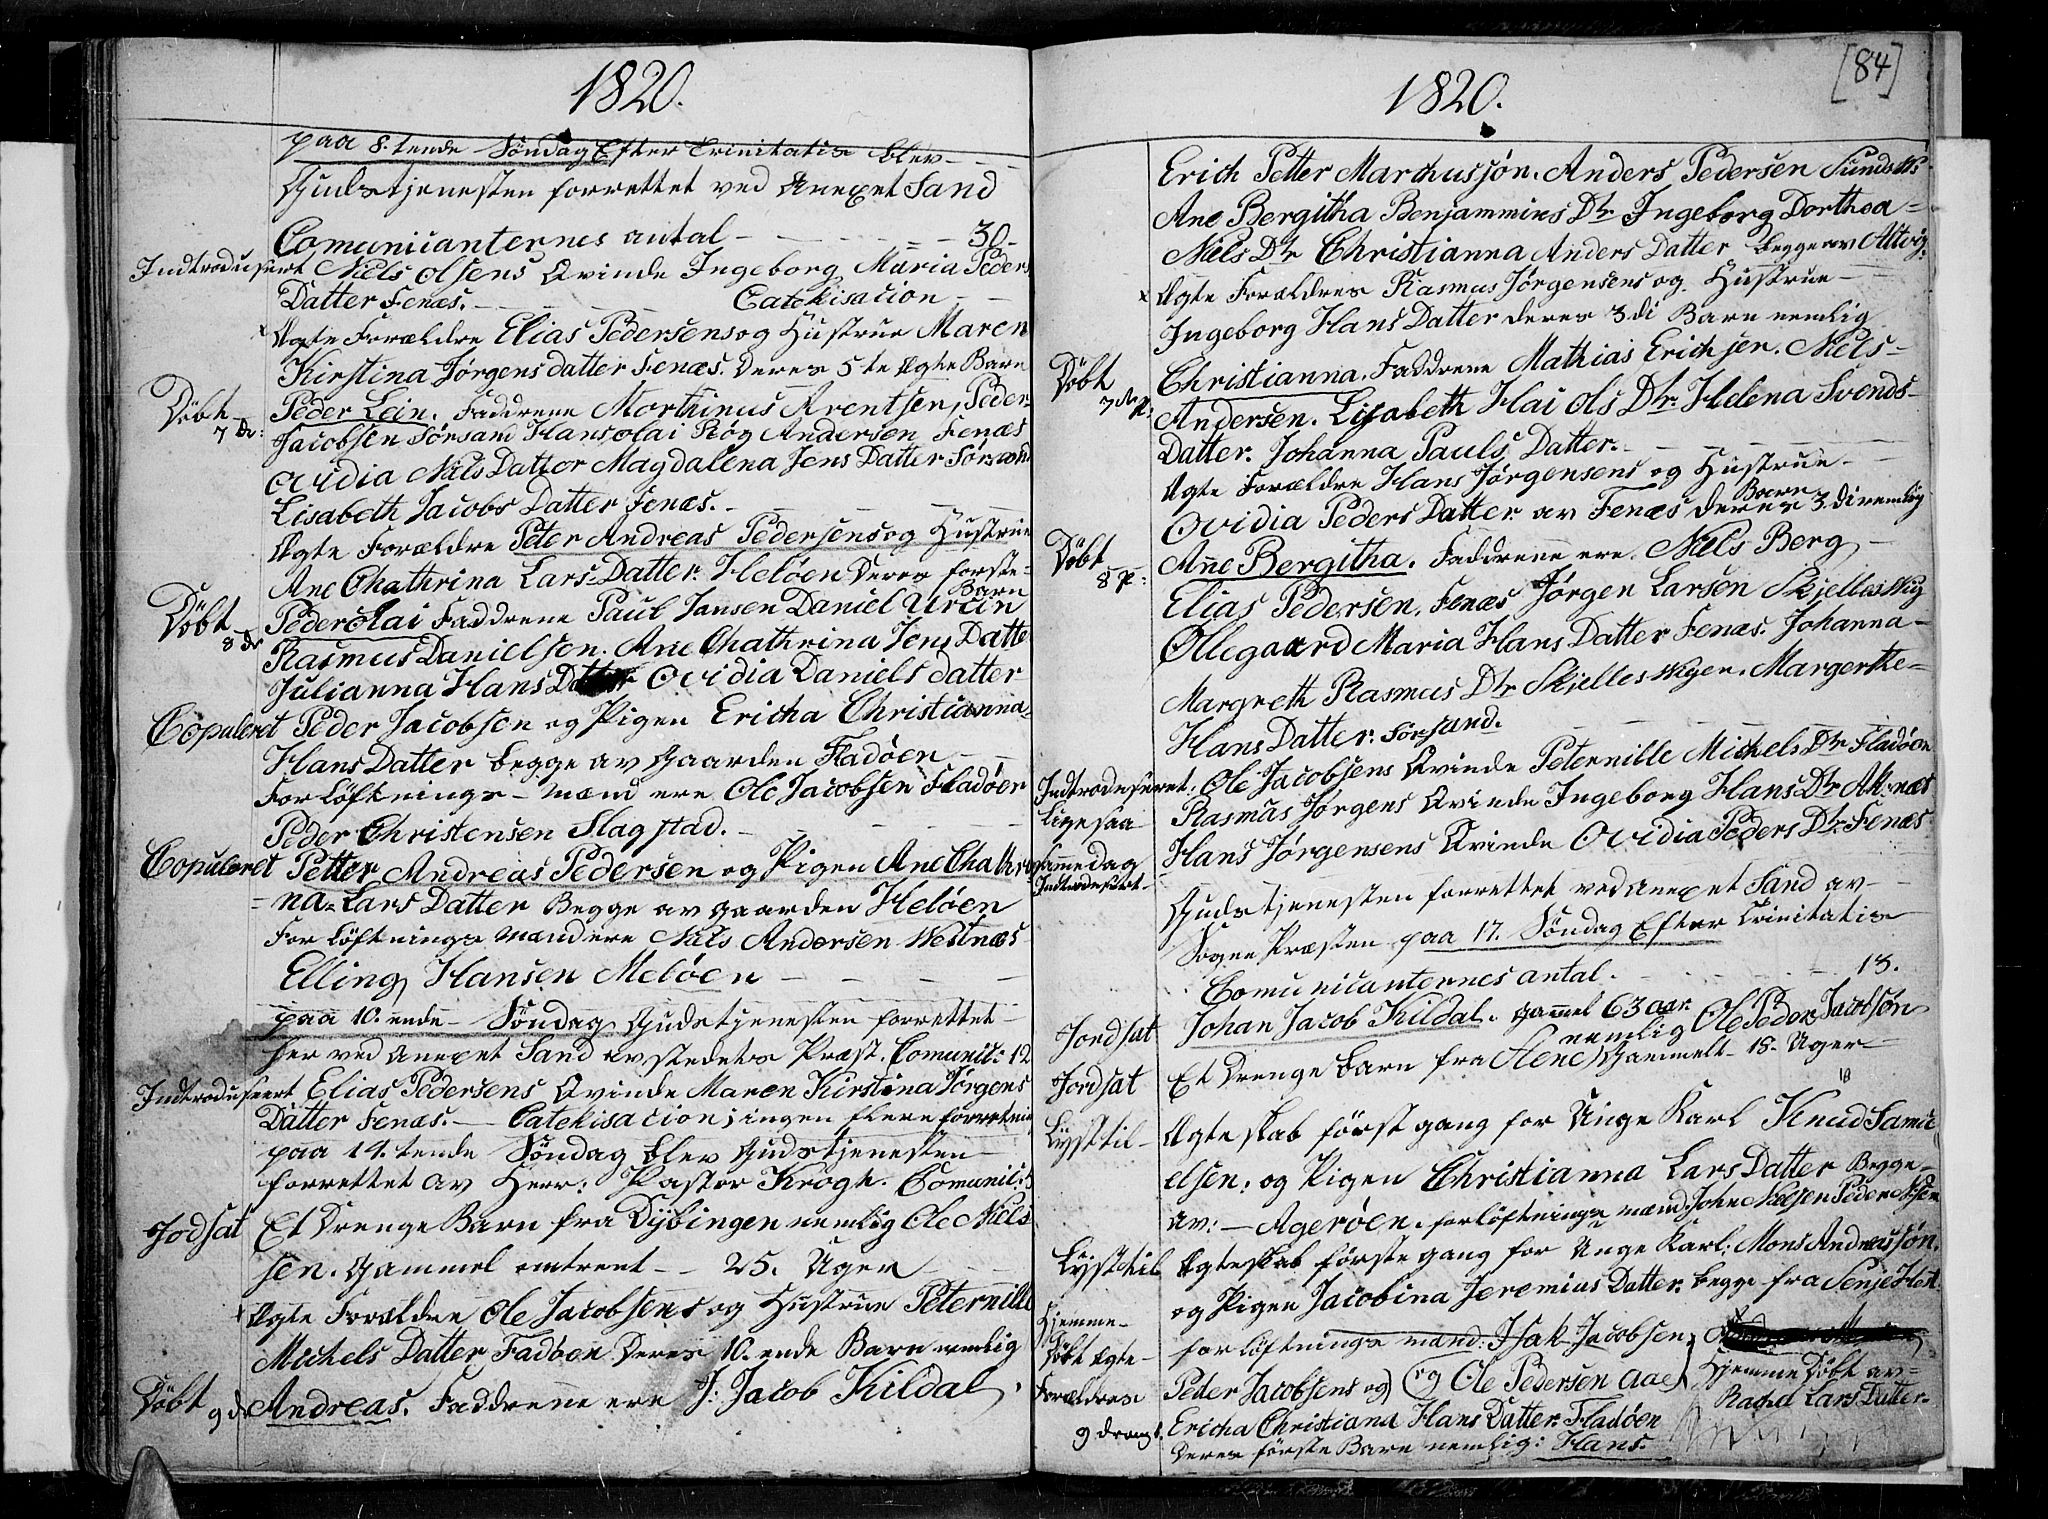 1820.
paa 8.tende Søndag Efter Trinitatis blev
Gudstjenesten forrettet ved Anexet Sand
Comunicanternes antal - - - 30 -
Indtrodusert Niels Olsens Qvinde Ingeborg Maria Peders
Datter Fenæs. - - - Catekisacion - -
x Ægte Forældre Elias Pedersens og Hustrue Maren
Kirstina Jørgensdatter Fenæs. Deres 5te Ægte Barn
Døbt 7 Dr: Peder Lein. Faddrene Morthinus Arentsen, Peder
Jacobsen Sørsand Hans Olai Røg Andersen Fenæs
Ovidia Niels Datter Magdalena Jens Datter Sørsand
Lisabeth Jacobs Datter Fenæs. - - -
Ægte Forældre Peter Andreas Pedersens og Hustrue
Ane Chathrina Lars Datter. Heløen Deres første-
Barn
Døbt 8 Dr Peder Olai Faddrene Paul Jansen Daniel Urcin
Rasmus Danielsen. Ane Chathrina Jens Datte
Julianna Hans Datter Ovidia Daniels datter
Copuleret Peder Jacobsen og Pigen Ericha Christianna
Hans Datter begge av Gaarden Fladøen - -
Forløftnings - mænd ere Ole Jacobsen Fladøen
Peder Christensen Slagstad. - - -
Copuleret Petter Andreas Pedersen og Pigen Ane Chathri
= na = Lars Datter Begge av Gaarden Heløen
Forløftnings Mænd ere Niels Andersen Westnæs
Elling Hansen Meløen - - -
paa 10.ende - Søndag Gudstjenesten forrettet -
her ved Anexet Sand av stedets Præst. Comunic: 12
Indtrodusert Elias Pedersens Qvinde Maren Kirstina Jørgens
Datter Fenæs. - Catekisacion; ingen flere forretnin
paa 14.tende Søndag blev Gudstjenesten
forrettet av Herr: Pastor Krogh. Comunic:
Jodsat Et Drenge Barn fra Dybingen nemlig Ole Niels
sen. Gammel omtrent - 25. Uger
x Ægte Forældre Ole Jacobsens og Hustrue Peternille
Michels Datter Fadøen Deres 10.ende Barn nemlig
Døbt 9 dr Andreas. Faddrene ere J: Jacob Kildal
[84]
1820.
Erich Petter Marchussøn. Anders Pedersen
Ane Bergitha Benjammins Dtr Ingeborg Dorthea =
Niels Dtr Christianna Anders Datter begge av
x Ægte Forældres Rasmus Jørgensens og Hustrue -
Ingeborg Hans Datter deres 3di Barn nemlig
Døbt Christianna. Faddrene Mathias Erichsen. Niels -
Andersen. Lisabeth Hai Ols Dtr. Helena Svends -
Datter. Johanna Pauls Datter. - - -
Ægte Forældre Hans Jørgensens og Hustrue -
Barn
Ovidia Peders Datter av Fenæs deres 3di nemlig
Døbt 8 P: Ane Bergitha. Faddrene ere Niels Berg -
Elias Pedersen. Fenæs Jørgen Larsen Skjelleswig
Ollegaard Maria Hans Datter Fenæs. Johanna -
Margreth Rasmus Dtr Skjelleswigen. Margerthe -
Hans Datter. Sørsand.
Indtroduseret. Ole Jacobsens Qvinde Peternille Michels Dtr Fladøen
ligesaa Rasmus Jørgens Qvinde Ingeborg Hans Dtr Aknæs
sammedag Hans Jørgensens Qvinde Ovidia Peders Dtr. Fenæs
Indtrodusert -
Gudstjenesten forrettet ved Anexet Sand av -
Sogne Præsten paa 17. Søndag Efter Trinitatis
Comunicanternes antal. - - - 18.
Jordsat Johan Jacob Kildal. Gammel 63 aar
nemlig Ole Peder Jacobsøn
Jordsat Et Drenge barn fra Alene Gammelt - 18. Uger -
Lyst til - Ægteskab først gang for Unge Karl Knud Samu
elsen: og Pigen Christianna Lars Datter Begge =
av: - Agerøen. forløftnings mænd: John Nielsen Peder
Lyst til Ægteskab første gang for Unge Karl: Mons Andreassøn.
og Pigen Jacobina Jeremias Datter. begge fra
Hjemme-
forløftnings mænd: Isak Jacobsen;
Døbt Ægte - Peder Jacobsens og) (og Ole Pedersen Aae) Hjemme Døbt av =
Forældres Ericha Christiana Hans Datter. Fladøen Rachel Lars Datter.
Deres første Barn nemlig: Hans.